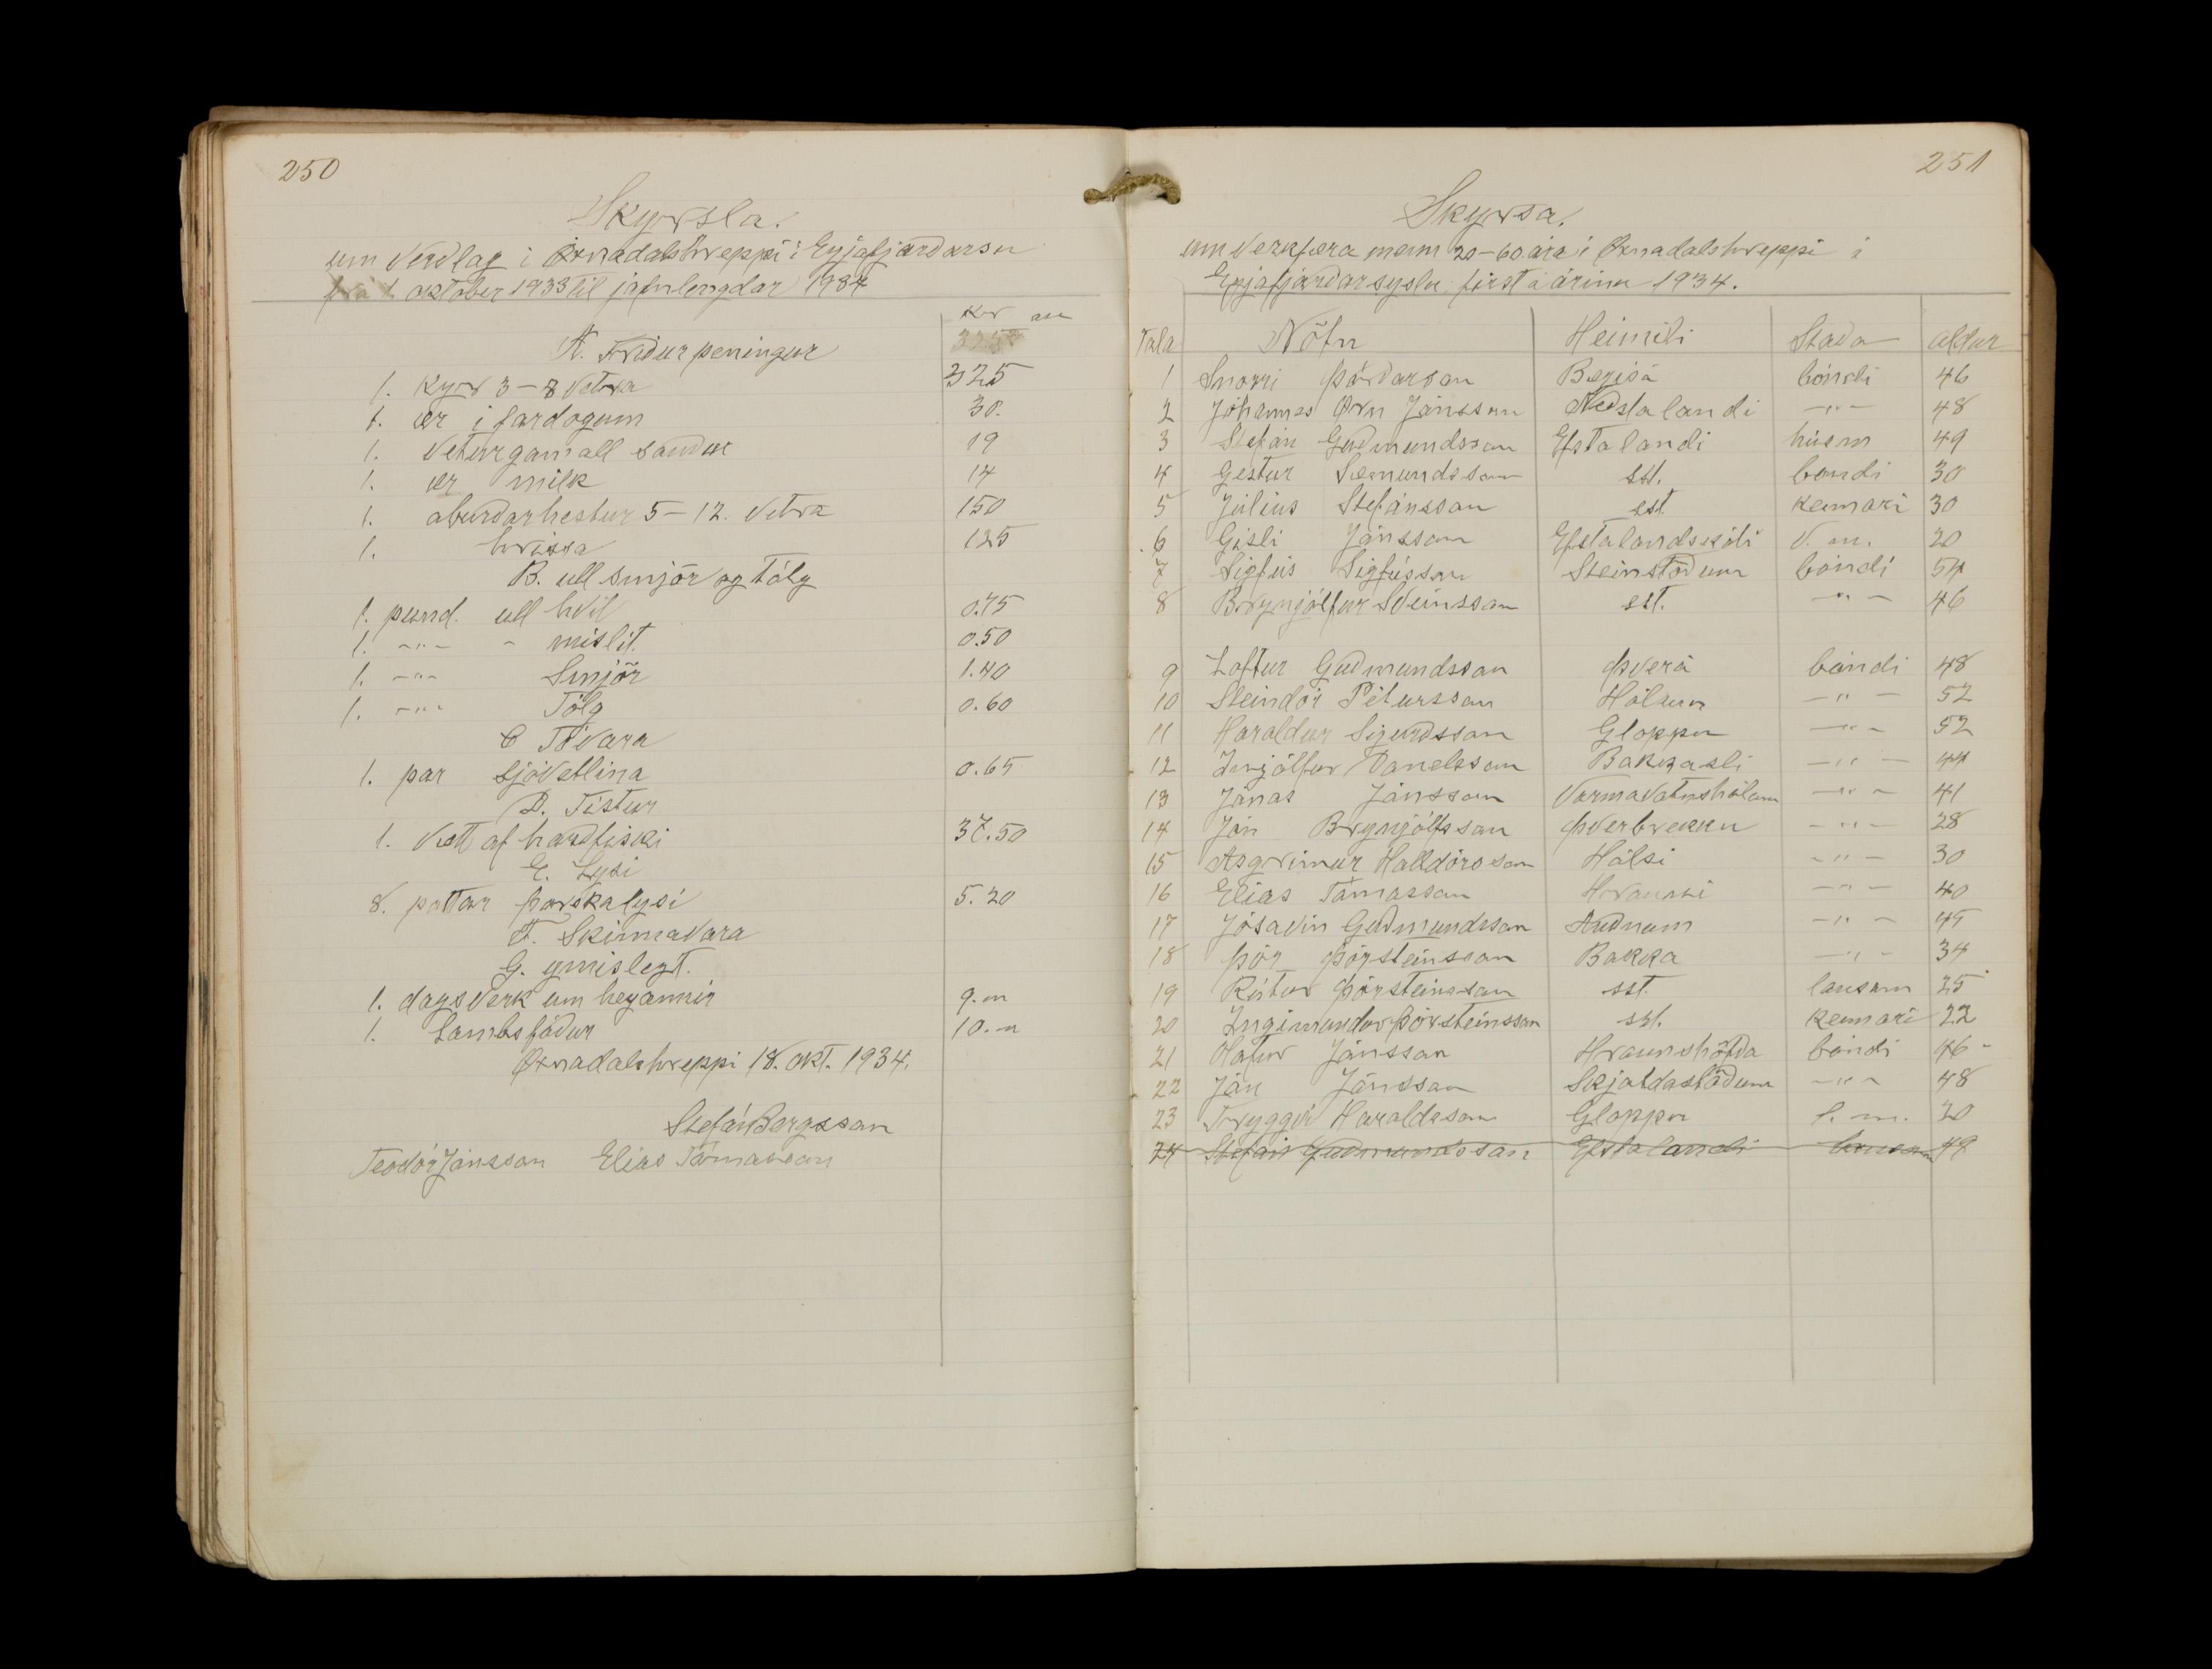 250
Skyrsla.
um Verdlag i Öxnadalshreppi i Eyjafjardarsu
frá 1 oktober 1933 til jafnlengdar 1934
Kr au
A. Fridur peningur
1. Kyr 3-8 Vetra 325
1. ær i fardogum 30.
1. Veturgamall saudur 19
1. ær milk 14
1. aburdarhestur 5-12. Vetra 150
1. hrissa 125
B. ull smjör og tólg
1. pund. ull hvit 0.75
1. -"- - mislit. 0.50
1. -"- Smjör 1.40
1. -"- Tólg 0.60
C Tóvara
1. par sjóvetlina 0.65
D. Fistur
1. Vætt af hardfiski 37.50
E. Lysi
8. pottar þorskalysi 5.20
F. Skinnavara
G. ymislegt.
1. dagsverk um heyannir 9.
1. Lambsfódur 10.
Öxnadalshreppi 18. okt. 1934.
Stefán Bergsson
Teodór Jónsson Elias Tómasson
251
Skyrsa.
um Verkfæra menn 20-60 ára i Öxnadalshreppi i
Eyjafjardarsyslu first á árinu 1934.
Tala Nöfn Heimili Stada aldur
1 Snorri Þórdarson Bægisá bóndi 46
2 Jóhannes Örn Jónsson Nedstalandi -"- 48
3 Stefán Gudmundsson Efstalandi húsm 49
4 Gestur Sæmundsson sst. bondi 30
5 Júlíus Stefánsson sst. kennari 30
6 Gisli Jónsson Efstalandskoti V. m. 20
7 Sigfús Sigfússon Steinstödum bóndi 54
8 Brynjólfur Sveinsson sst. -"- 46
9 Loftur Gudmundsson Þverá bóndi 48
10 Steindór Pétursson Hólum -"- 52
11 Haraldur Sigurdsson Gloppu -"- 52
12 Ingólfur Danelsson Bakkaseli -"- 44
13 Jónas Jónsson Varmavatnshólum -"- 41
14 Jón Brynjólfsson Þverbrekku -"- 28
15 Asgrimur Halldórsson Hálsi -"- 30
16 Elias Tómasson Hrauni -"- 40
17 Jósavin Gudmundsson Audnum -"- 45
18 Þór Þórsteinsson Bakka -"- 34
19 Rútur Þórsteinsson sst. lausam 25
20 Ingimundur Þórsteinsson sst. kennari 22
21 Olafur Jónsson Hraunshöfda bóndi 46
22 Jón Jónsson Skjaldastödum -"- 48
23 Tryggvi Haraldsson Gloppu l. m. 20
24 Stefán Gudmundsson Efstalandi lausam 49